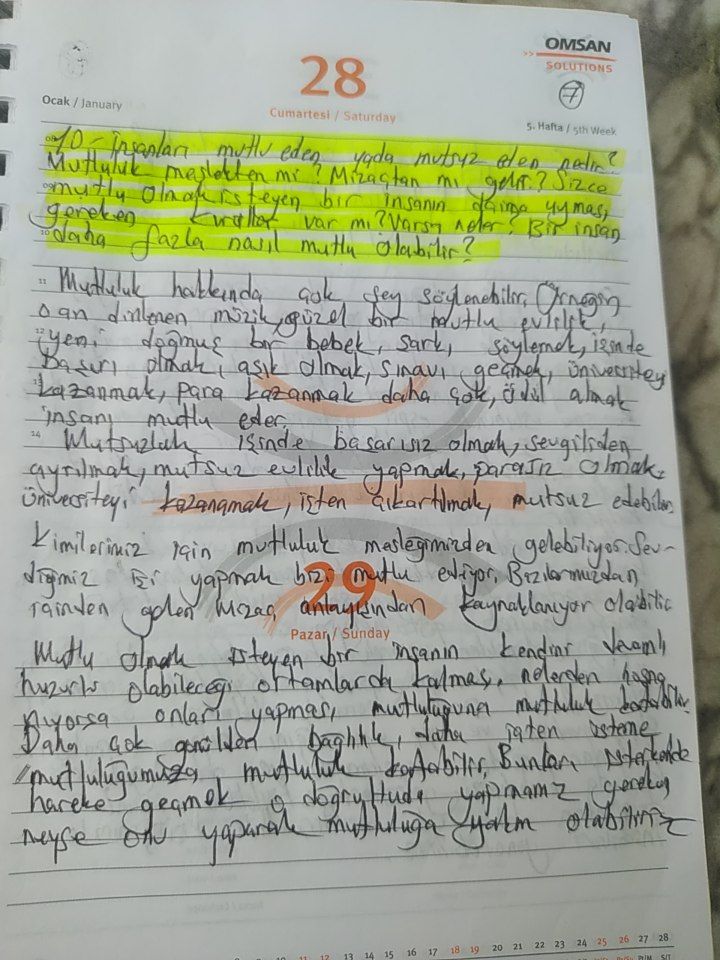 OMSAN
SOLUTIONS
28
7
Ocak / January
Cumartesi / Saturday
5. Hafta / 5th Week
10- İnsanları mutlu eden yada mutsuz eden nedir?
Mutluluk meslekten mi? Mizaçtan mı gelir? Sizce
mutlu olmak isteyen bir insanın daima uyması
gereken kurallar var mı? Varsa neler? Bir insan
daha fazla nasıl mutlu olabilir?
Mutluluk hakkında çok şey söylenebilir, Örneğin
o an dinlenen müzik, güzel bir mutlu evlilik,
yeni doğmuş bir bebek, şarkı, söylemek, işinde
başarı olmak, aşık olmak, sınavı geçmek, üniversiteyi
kazanmak, para kazanmak daha çok, ödül almak
insanı mutlu eder.
Mutsuzluk işinde başarısız olmak, sevgiliden
ayrılmak, mutsuz evlilik yapmak, parasız olmak,
üniversiteyi kazanamak, işten çıkartılmak, mutsuz edebilir.
Kimilerimiz için mutluluk mesleğimizden gelebiliyor. Sev-
diğimiz işi yapmak bizi mutlu ediyor, Bizlarımızdan
içinden gelen mizaç anlayışından kaynaklanıyor olabilir
29
Pazar / Sunday
Mutlu olmak isteyen bir insanın kendini devamlı
huzurlu olabileceği ortamlarda kalması, nelerden hoşna
nıyorsa onları yapması, mutluluğuna mutluluk
Daha çok gönülden bağlılık, daha içten isteme
mutluluğumuza, mutluluk katabilir, Bunları
hareke geçmek o doğrultuda yapmamız gereken
neyse onu yaparak mutluluğa yakın olabiliriz
11 12 13 14 15 16 17 18 19 20 21 22 23 24 25 26 27 28